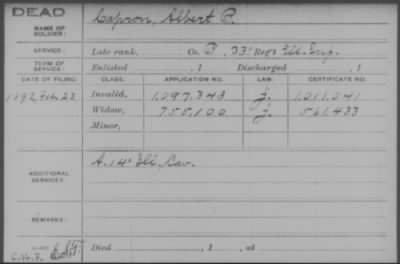 DEAD
NAME OF SOLDIER: Capron, Albert B.
SERVICE: Late rank, Co. B, 33' Reg't Ill. Inf.
TERM OF SERVICE: Enlisted , 1 Discharged , 1
DATE OF FILING. CLASS. APPLICATION NO. LAW. CERTIFICATE NO.
1892, Feb. 23 Invalid, 1,097,343 J. 1,011,041
Widow, 755,100 J. 561,433
Minor,
A. 14' Ill. Cav.
ADDITIONAL SERVICES:
REMARKS:
Died , 1 , at